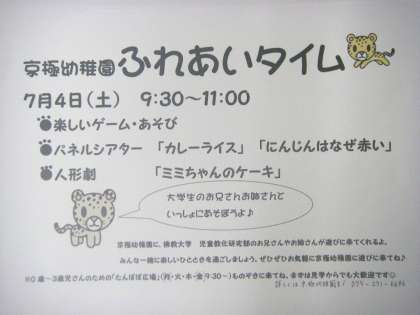 京極幼稚園 ふれあいタイム
7月4日(土) 9:30~11:00
楽しいゲーム・あそび
パネルシアター 「カレーライス」 「にんじんはなぜ赤い」
人形劇 「ミミちゃんのケーキ」
大学生のお兄さんお姉さんと
いっしょにあそぼうよ♪
京極幼稚園に、佛教大学 児童教化研究部のお兄さんやお姉さんが遊びに来てくれるよ。
みんな一緒に楽しいひとときを過ごしましょう。ぜひぜひお気軽に京極幼稚園に遊びに来てね♪
※0歳~3歳児さんのための「たんぽぽ広場」(月・火・木・金 9:30~)ものぞきに来てね。まずは見学からでも大歓迎です☺
詳しくは京極幼稚園まで